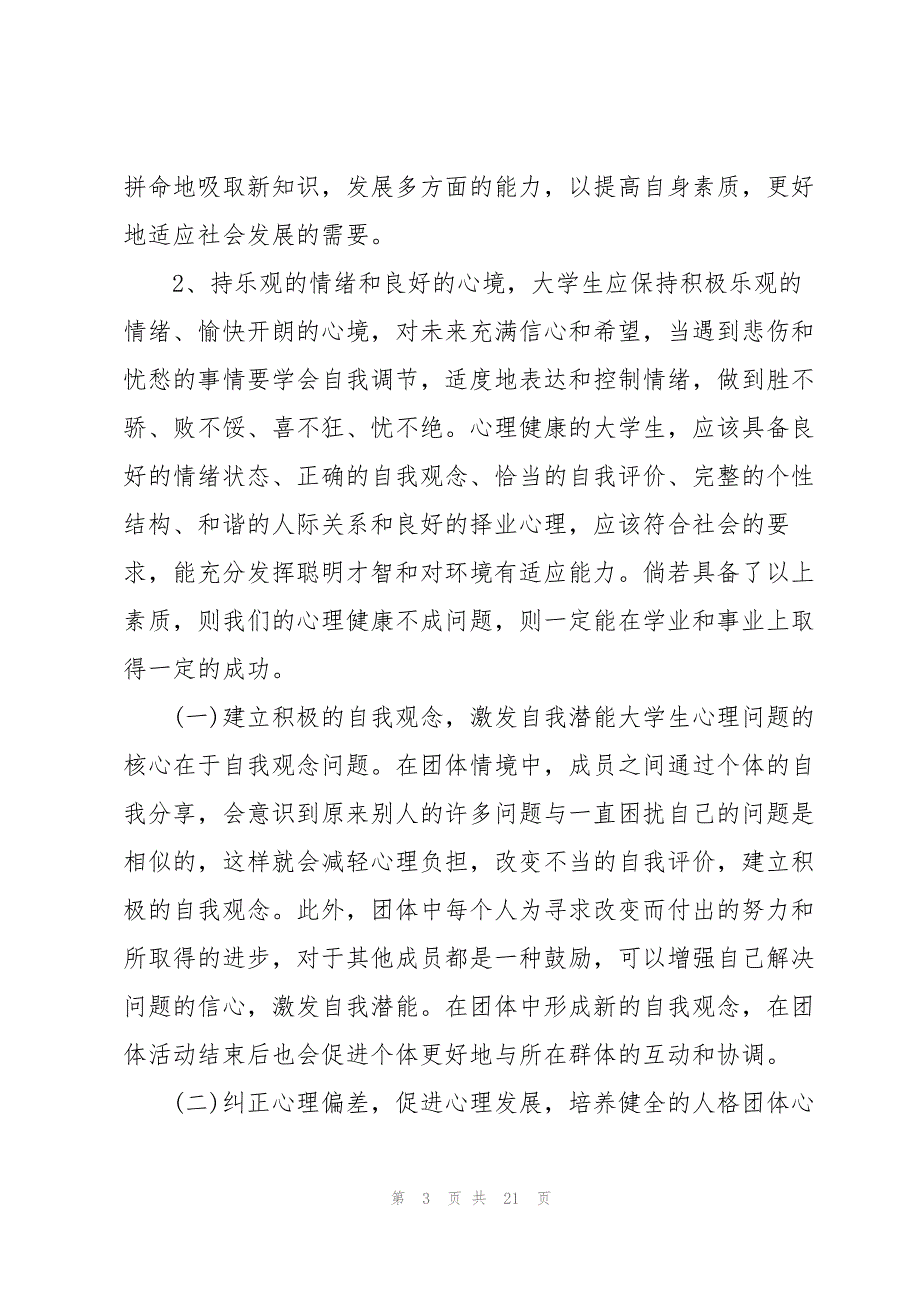 拼命地吸取新知识，发展多方面的能力，以提高自身素质，更好
地适应社会发展的需要。
2、持乐观的情绪和良好的心境，大学生应保持积极乐观的
情绪、愉快开朗的心境，对未来充满信心和希望，当遇到悲伤和
忧愁的事情要学会自我调节，适度地表达和控制情绪，做到胜不
骄、败不馁、喜不狂、忧不绝。心理健康的大学生，应该具备良
好的情绪状态、正确的自我观念、恰当的自我评价、完整的个性
结构、和谐的人际关系和良好的择业心理，应该符合社会的要
求，能充分发挥聪明才智和对环境有适应能力。倘若具备了以上
素质，则我们的心理健康不成问题，则一定能在学业和事业上取
得一定的成功。
(一)建立积极的自我观念，激发自我潜能大学生心理问题的
核心在于自我观念问题。在团体情境中，成员之间通过个体的自
我分享，会意识到原来别人的许多问题与一直困扰自己的问题是
相似的，这样就会减轻心理负担，改变不当的自我评价，建立积
极的自我观念。此外，团体中每个人为寻求改变而付出的努力和
所取得的进步，对于其他成员都是一种鼓励，可以增强自己解决
问题的信心，激发自我潜能。在团体中形成新的自我观念，在团
体活动结束后也会促进个体更好地与所在群体的互动和协调。
(二)纠正心理偏差，促进心理发展，培养健全的人格团体心
第 3 页 共 21 页